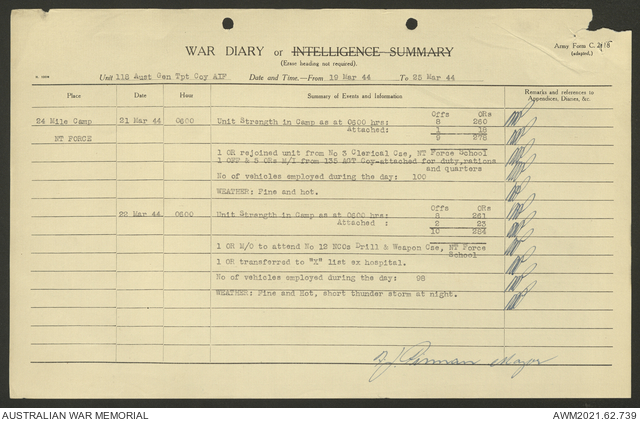 WAR DIARY or INTELLIGENCE SUMMARY
(Erase heading not required).
Army Form C.2118
(adapted.)
Unit 118 Aust Gen Tpt Coy AIF Date and Time.—From 19 Mar 44 To 25 Mar 44
Place Date Hour Summary of Events and Information Remarks and references in
Appendices, Diaries, &c.
Offs ORs
24 Mile Camp 21 Mar 44 0600 Unit Strength in Camp as at 0600 hrs: 8 260
Attached: 1 18
NT FORCE 9 278
1 OR rejoined unit from No 3 Clerical Cse, NT Force School
1 OFF & 5 ORs M/I from 135 AGT Coy-attached for duty, rations
and quarters
No of vehicles employed during the day: 100
WEATHER: Fine and hot.
Offs ORs
22 Mar 44 0600 Unit Strength in Camp as at 0600 hrs: 8 261
Attached : 2 23
10 284
1 OR M/O to attend No 12 NCOs Drill & Weapon Cse, NT Force
School
1 OR transferred to "X" list ex hospital.
No of vehicles employed during the day: 98
WEATHER: Fine and Hot, short thunder storm at night.
Major
AUSTRALIAN WAR MEMORIAL AWM2021.62.739